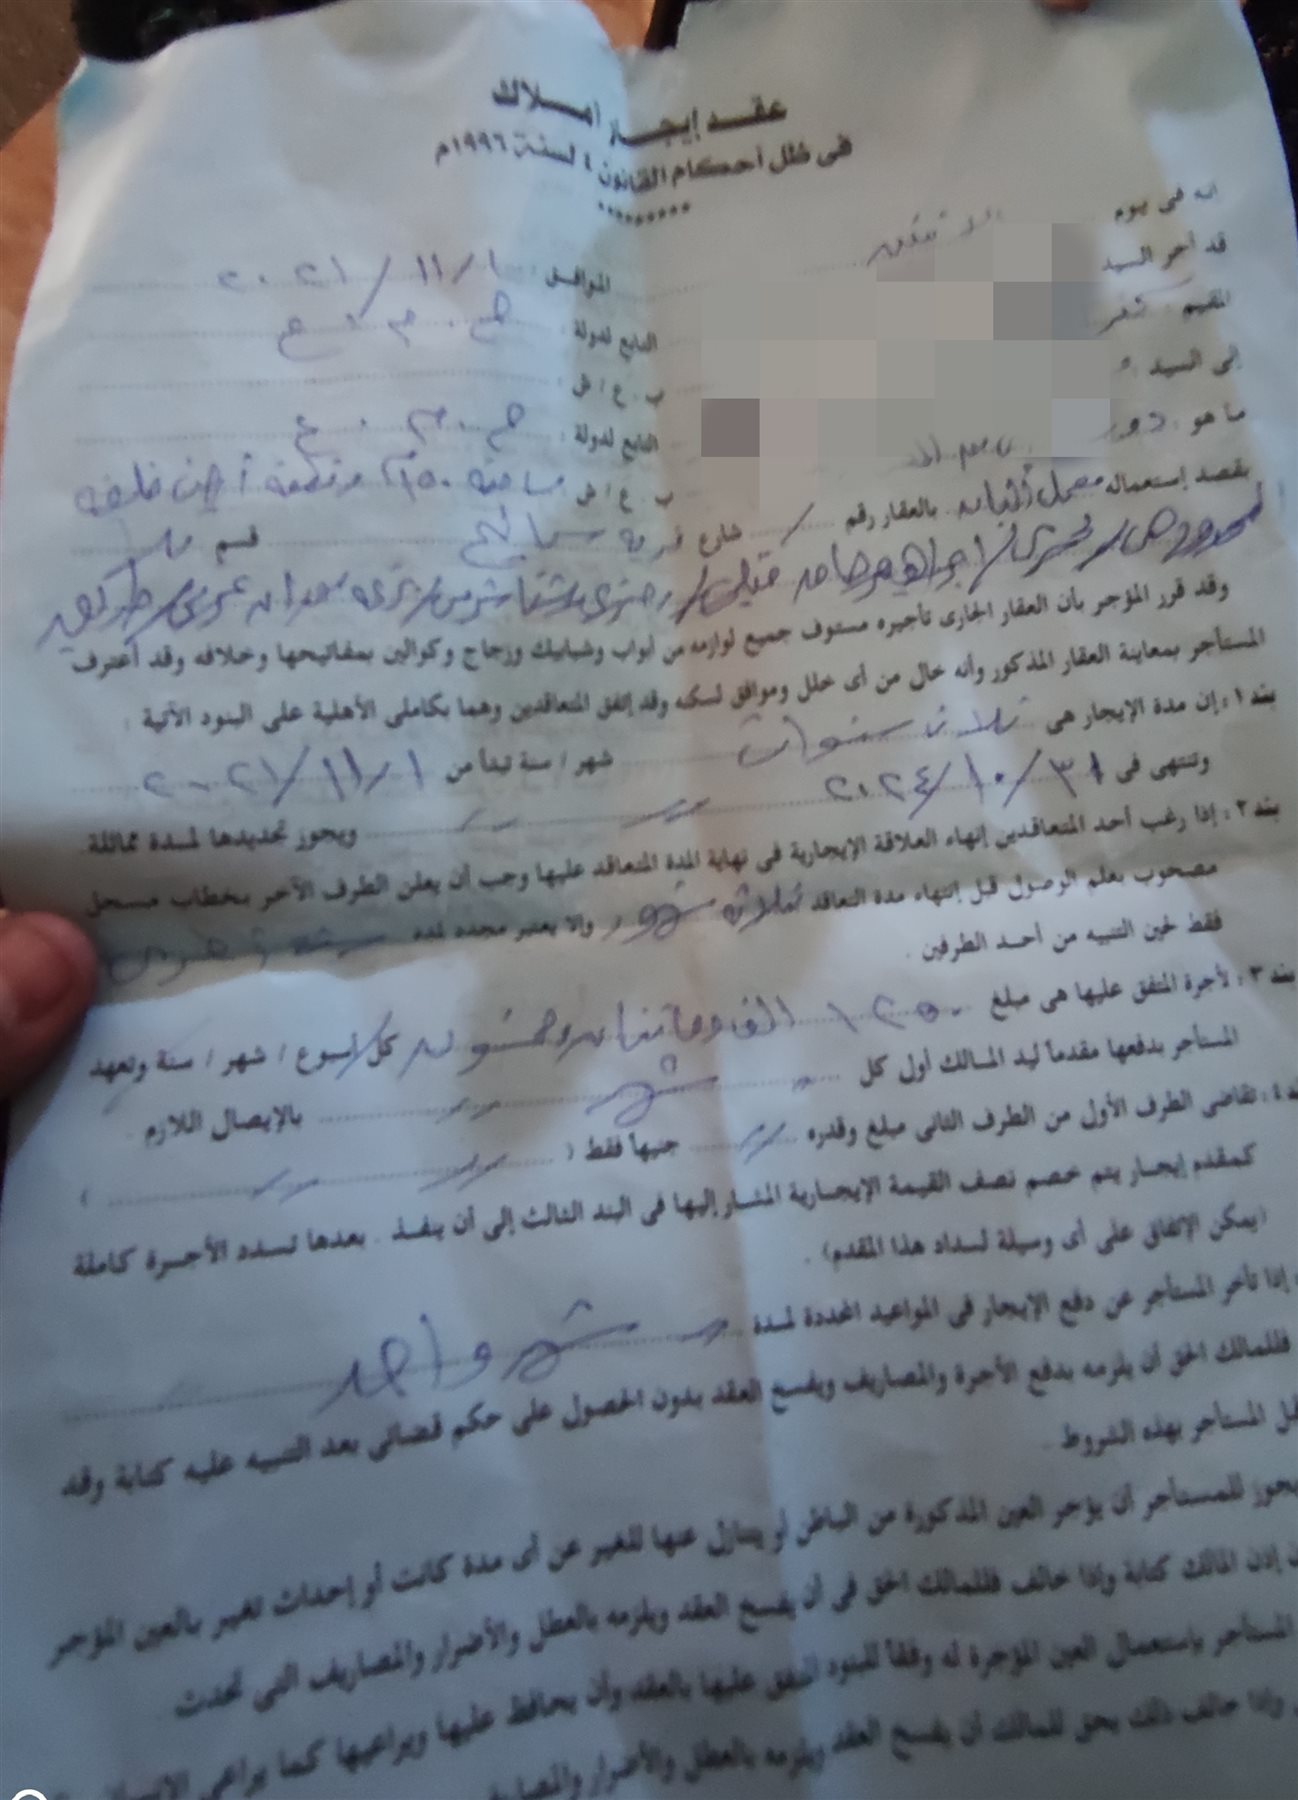 عقد إيجار أملاك
فى ظل أحكام القانون ٤ لسنة ١٩٩٦م
*********
انه فى يوم الاثنين الموافق : ١ / ١١ / ٢٠٢١
قد أجر السيد التابع لدولة : ج . م . ع
المقيم ب . ع / ش :
إلى السيد التابع لدولة : ج . م . ع
ما هو ب . ع / ش مساحته ١٥٠م
بقصد إستعماله معمل ألبان بالعقار رقم شارع قرية قسم
وقد قرر المؤجر بأن العقار الجارى تأجيره مستوف جميع لوازمه من أبواب وشبابيك وزجاج وكوالين بمفاتيحها وخلافه وقد أعترف
المستأجر بمعاينة العقار المذكور وأنه خال من أى خلل وموافق لسكنه وقد إتفق المتعاقدين وهما بكاملى الأهلية على البنود الآتية :
بند ١ : إن مدة الإيجار هى ثلاث سنوات شهر / سنة تبدأ من ١ / ١١ / ٢٠٢١
وتنتهى فى ٣١ / ١٠ / ٢٠٢٤ ويجوز تجديدها لمدة مماثلة
بند ٢ : إذا رغب أحد المتعاقدين إنهاء العلاقة الإيجارية فى نهاية المدة المتعاقد عليها وجب أن يعلن الطرف الآخر بخطاب مسجل
مصحوب بعلم الوصول قبل إنتهاء مدة التعاقد ثلاثة شهور وإلا يعتبر مجدد لمدة
فقط لحين التنبيه من أحد الطرفين .
بند ٣ : لأجرة المتفق عليها هى مبلغ ١٢٥٠ الف ومائتان وخمسون كل أسبوع / شهر / سنة وتعهد
المستأجر بدفعها مقدماً ليد المالك أول كل شهر بالإيصال اللازم .
تقاضى الطرف الأول من الطرف الثانى مبلغ وقدره جنيهاً فقط ( )
كمقدم إيجار يتم خصم نصف القيمة الإيجارية المشار إليها فى البند الثالث إلى أن ينفد . بعدها تسدد الأجرة كاملة
(يمكن الإتفاق على أى وسيلة لسداد هذا المقدم) .
إذا تأخر المستأجر عن دفع الإيجار فى المواعيد المحددة لمدة شهر واحد
فللمالك الحق أن يلزمه بدفع الأجرة والمصاريف ويفسخ العقد بدون الحصول على حكم قضائى بعد التنبيه عليه كتابة وقد
المستأجر بهذه الشروط .
للمستأجر أن يؤجر العين المذكورة من الباطن أو يتنازل عنها للغير عن أى مدة كانت أو إحداث تغيير بالعين المؤجر
إذن المالك كتابة وإذا خالف فللمالك الحق فى أن يفسخ العقد ويلزمه بالعطل والأضرار والمصاريف التى تحدث .
المستأجر بإستعمال العين المؤجرة له وفقاً للبنود المتفق عليها بالعقد وأن يحافظ عليها ويراعيها كما يراعى
وإذا خالف ذلك يحق للمالك أن يفسخ العقد ويلزمه بالعطل والأضرار